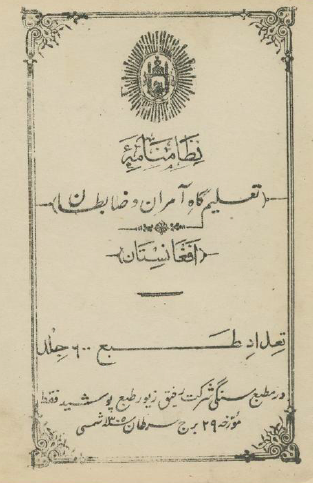 نظامنامهٔ
تعلیم گاه آمران و ضابطان
افغانستان
تعداد طبع ۶۰۰ جلد
در مطبع سنگی شرکت رفیق زیور طبع پوشید فقط
مؤرخه ۲۹ برج سرطان ۱۳۰۵ شمسی